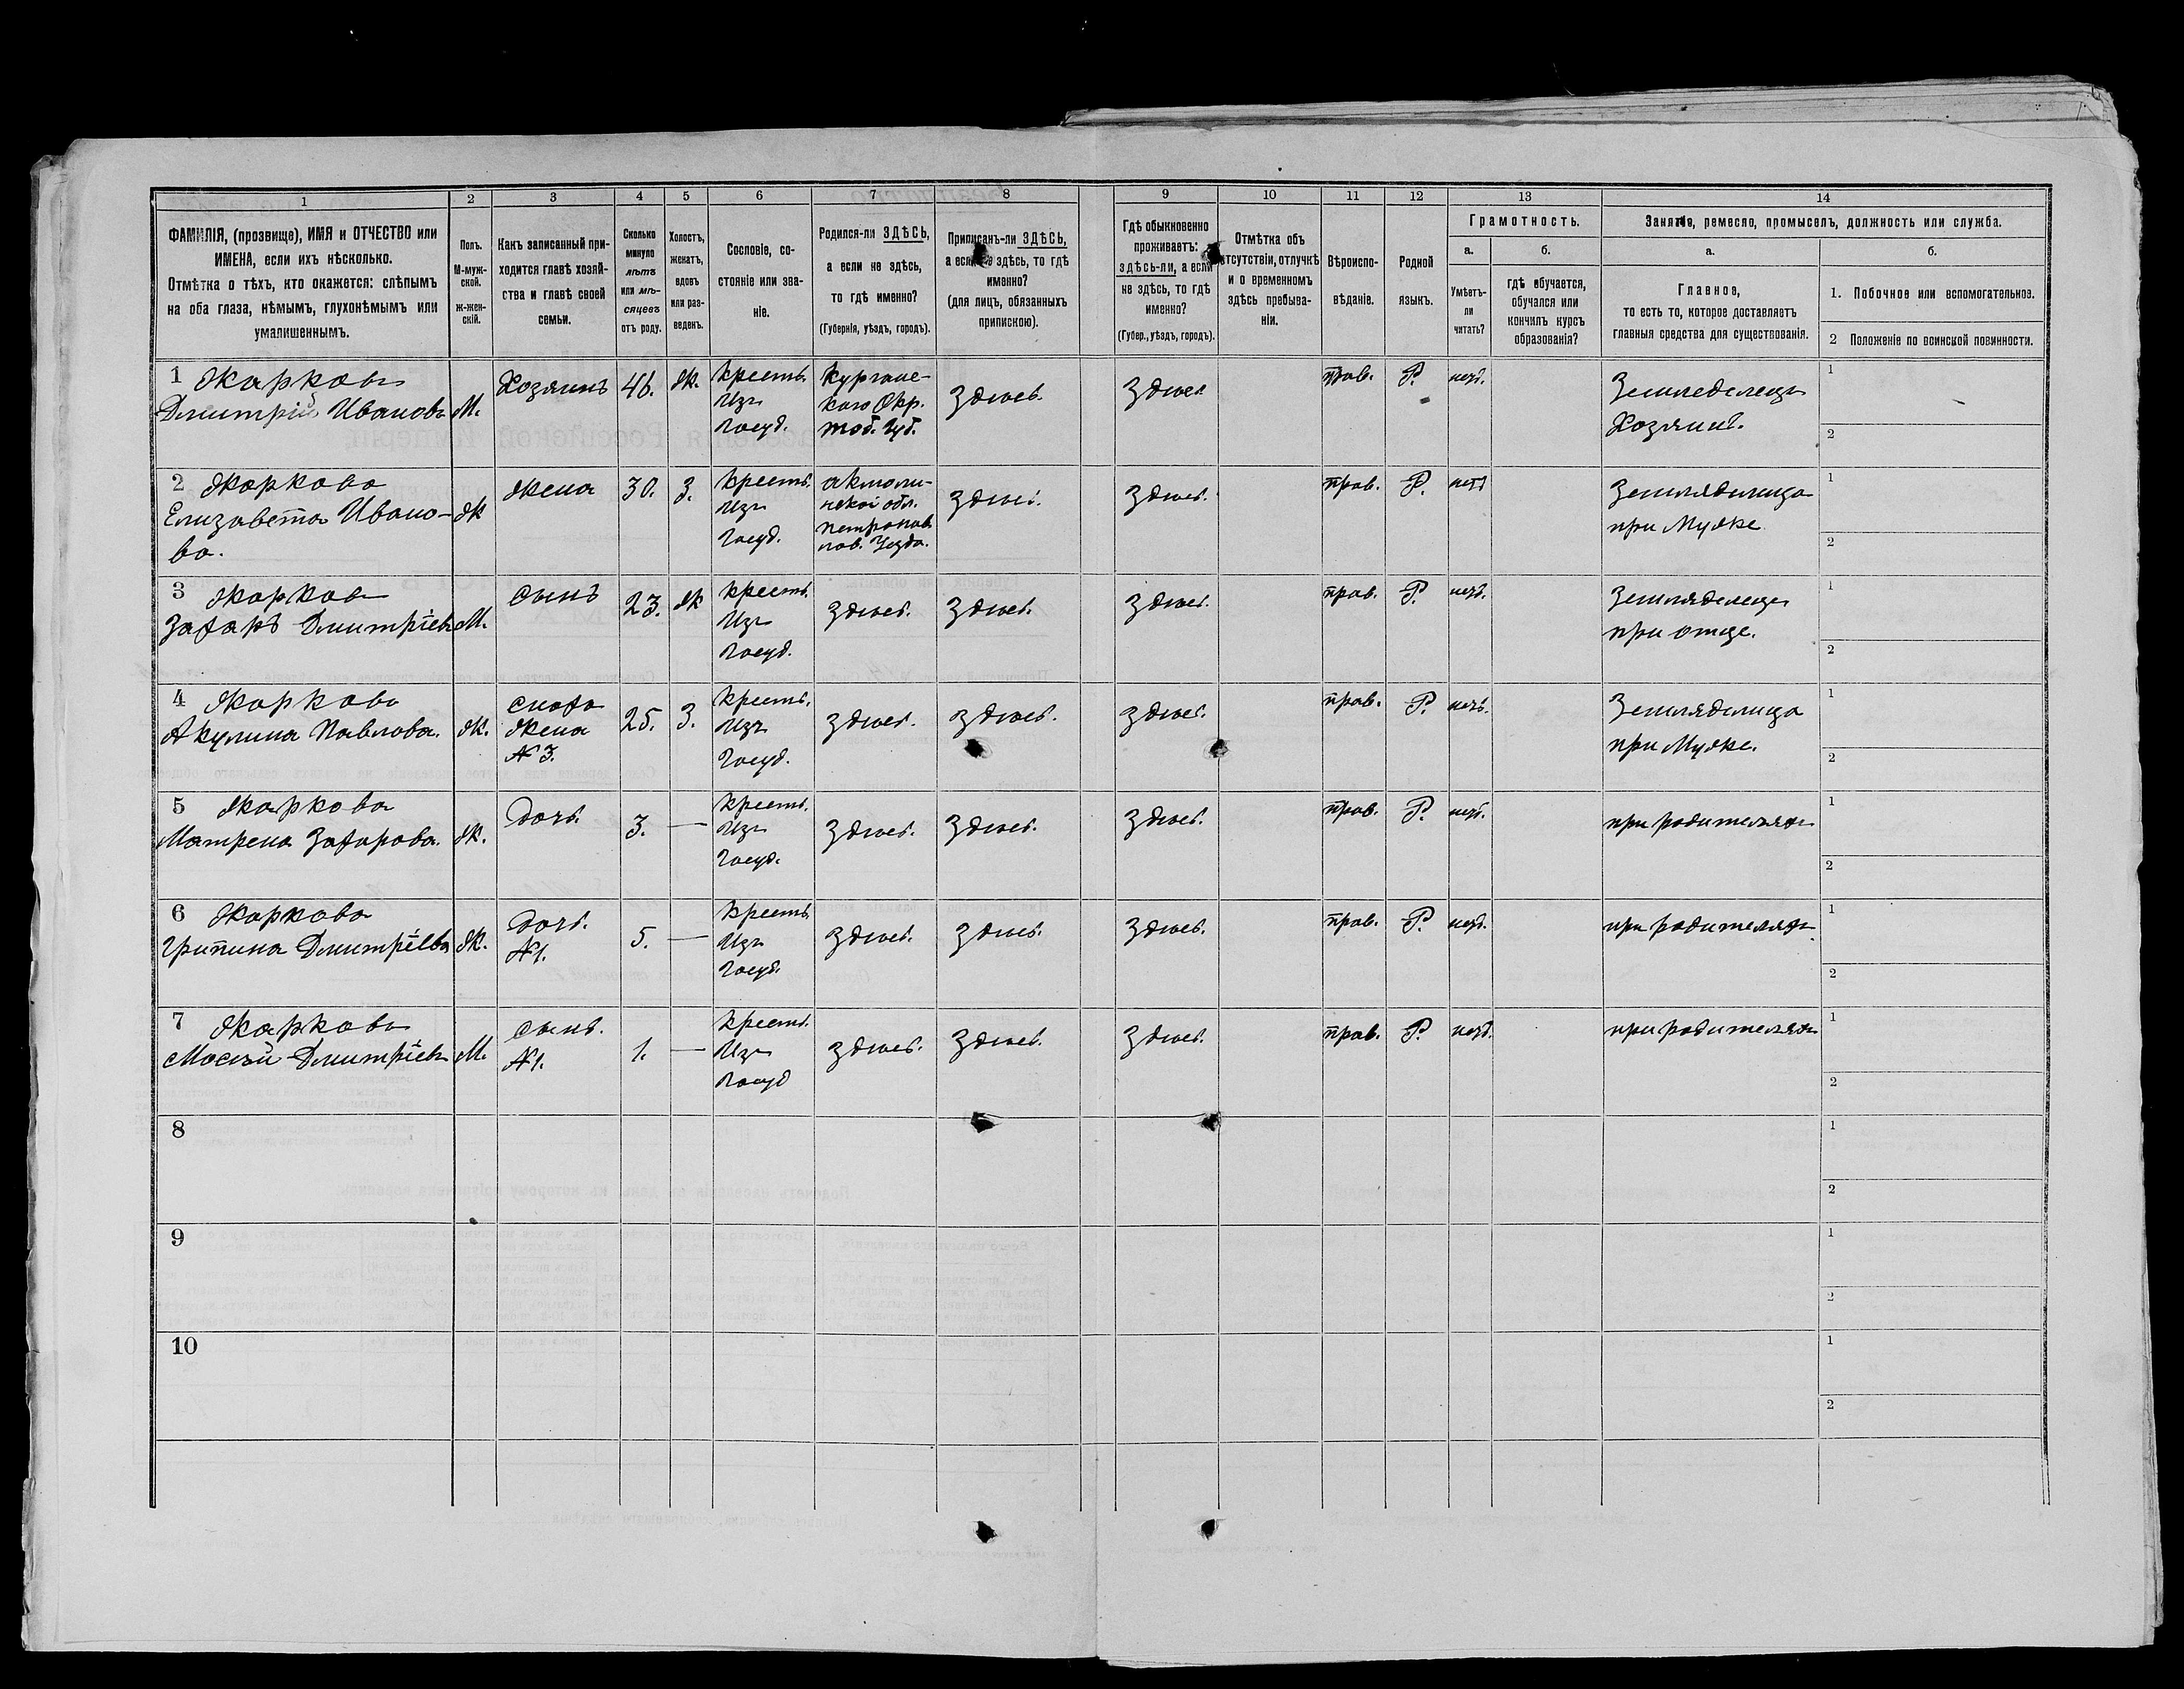 1 2 3 4 5 6 7 8 9 10 11 12 13 14
ФАМИЛІЯ, (прозвище), ИМЯ и ОТЧЕСТВО или
ИМЕНА, если ихъ нѣсколько.
Отмѣтка о тѣхъ, кто окажется: слѣпымъ
на оба глаза, нѣмымъ, глухонѣмымъ или
умалишеннымъ.
Полъ.
М-муж-
ской.
ж-жен-
скій.
Какъ записанный при-
ходится главѣ хозяй-
ства и главѣ своей
семьи.
Сколько
минуло
лѣтъ
или мѣ-
сяцевъ
отъ роду.
Холостъ,
женатъ,
вдовъ
или раз-
веденъ.
Сословіе, со-
стояніе или зва-
ніе.
Родился-ли ЗДѢСЬ,
а если не здѣсь,
то гдѣ именно?
(Губернія, уѣздъ, городъ).
Приписанъ-ли ЗДѢСЬ,
а если не здѣсь, то гдѣ
именно?
(для лицъ, обязанныхъ
припискою).
Гдѣ обыкновенно
проживаетъ:
здѣсь-ли, а если
не здѣсь, то гдѣ
именно?
(Губер., уѣздъ, городъ).
Отмѣтка объ
отсутствіи, отлучкѣ
и о временномъ
здѣсь пребыва-
ніи.
Вѣроиспо-
вѣданіе.
Родной
языкъ.
Грамотность.
а.
Умѣетъ-
ли
читать?
б.
гдѣ обучается,
обучался или
кончилъ курсъ
образованія?
Занятіе, ремесло, промыселъ, должность или служба.
а.
Главное,
то есть то, которое доставляетъ
главныя средства для существованія.
б.
1. Побочное или вспомогательное.
2 Положеніе по воинской повинности.
1 Жарковъ
Дмитрій Ивановъ
М.
Хозяинъ
46.
Ж.
Крестъ.
Изъ
Госуд.
Кургане-
каго Окр.
Тоб. Губ.
Здѣсь.
Здѣсь
прав.
Р.
нетъ.
Земледелецъ
Хозяинъ.
1
2
2 Жаркова
Елизавета Ивано-
ва.
Ж
Жена
30.
З.
Крестъ.
Изъ
Госуд.
Акмоли-
нской обл.
Петропав
лов. Уезда.
Здѣсь.
Здѣсь.
прав.
Р.
нетъ
Землядѣлица
при Муже
1
2
3 Жарковъ
Захаръ Дмитріевъ
М.
Сынъ
23.
Ж
Крестъ.
Изъ
Госуд.
Здѣсь.
Здѣсь.
Здѣсь.
прав.
Р.
нетъ.
Землядѣлецъ
при отце.
1
2
4 Жаркова
Акулина Павлова.
Ж.
Сноха
Жена
№ 3.
25.
З.
Крестъ.
Изъ
Госуд.
Здѣсь.
Здѣсь.
Здѣсь.
прав.
Р.
нетъ.
Землядѣлица
при Муже.
1
2
5 Жаркова
Матрена Захарова.
Ж.
Дочь.
3.
—
Крестъ.
Изъ
Госуд.
Здѣсь.
Здѣсь.
Здѣсь.
прав.
Р.
нетъ.
при родителяхъ
1
2
6 Жаркова
Грипина Дмитріева
Ж.
Дочь.
№ 1.
5.
—
Крестъ
Изъ
Госуд.
Здѣсь.
Здѣсь.
Здѣсь.
прав.
Р.
нетъ.
при родителяхъ
1
2
7 Жарковъ
Мосѣй Дмитріевъ
М.
Сынъ.
№ 1.
1.
—
Крестъ.
Изъ
Госуд
Здѣсь.
Здѣсь.
Здѣсь.
прав.
Р.
нетъ.
при родителяхъ
1
2
8
1
2
9
1
2
10
1
2